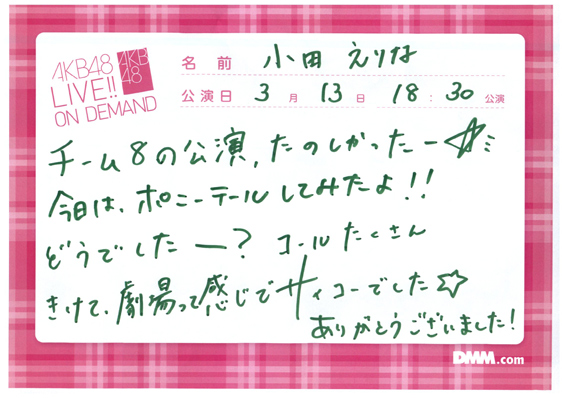 AKB48
LIVE!!
ON DEMAND
AKB
48
名前 小田 えりな
公演日 3月 13日 18:30 公演
チーム8の公演,たのしかったー☆ミ
今日は、ポニーテールしてみたよ!!
どうでしたー? コールたくさん
きけて、劇場って感じでサイコーでした☆
ありがとうございました!
DMM.com